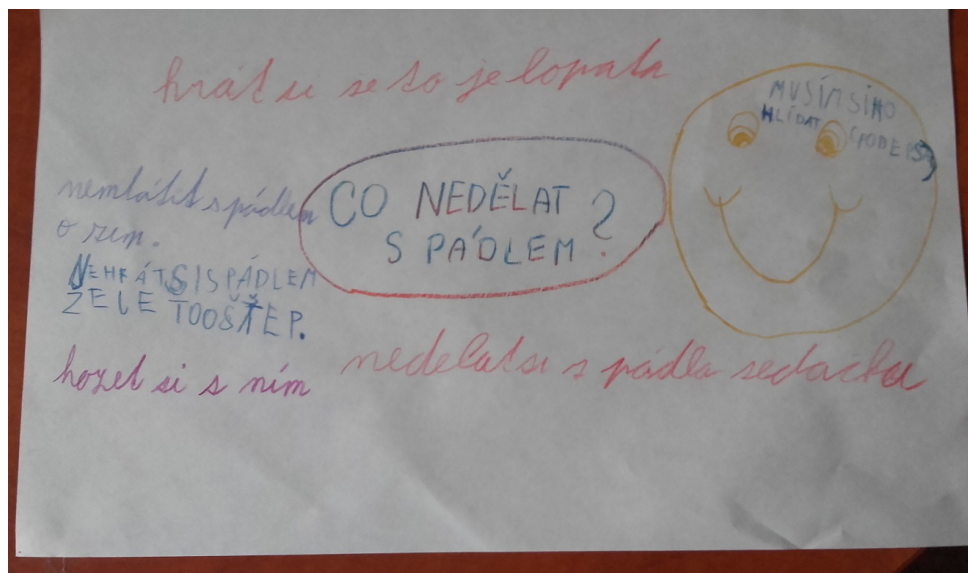 hrát si se to je lopata
MUSÍM SI HO
HLÍDAT
nemlátit s pádlem
o zem.
CO NEDĚLAT
S PÁDLEM ?
NEHRÁT SI S PÁDLEM
ŽE JE TO OŠTĚP.
hozet si s ním
nedělat si s pádla sedačku